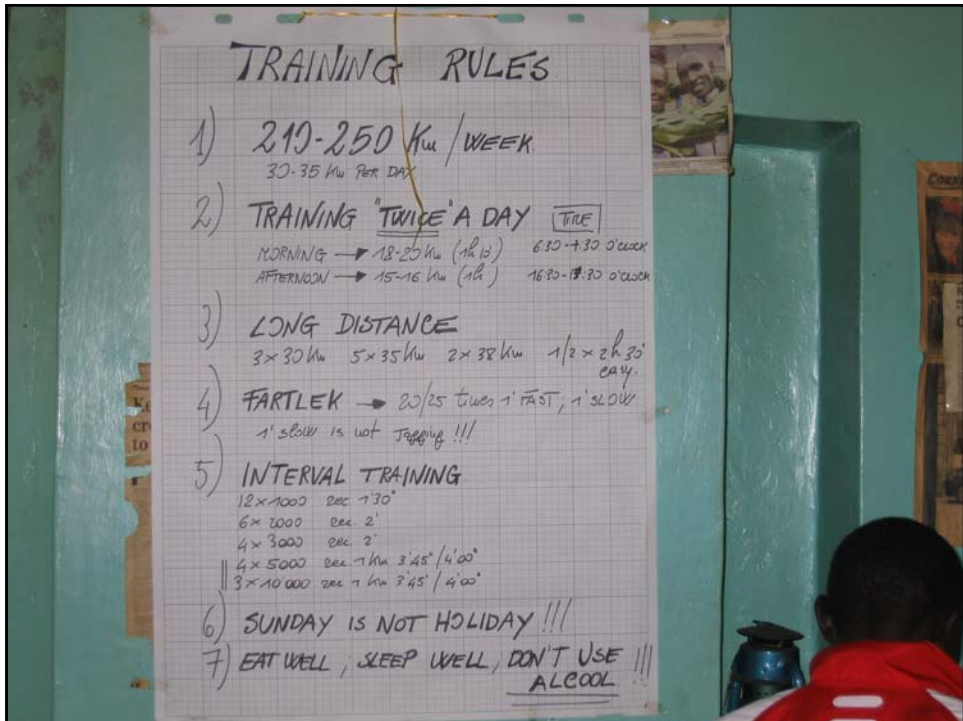 TRAINING RULES
1) 210-250 Km / WEEK
30-35 Km PER DAY
2) TRAINING "TWICE" A DAY TIME
MORNING → 18-20 Km (1h 10') 6:30-7:30 O'CLOCK
AFTERNOON → 15-16 Km (1h) 16:30-17:30 O'CLOCK
3) LONG DISTANCE
3 x 30 Km 5 x 35 Km 2 x 38 Km 1/2 x 2h 30'
easy.
4) FARTLEK → 20/25 times 1' FAST, 1' SLOW
1' slow is not Jogging !!!
5) INTERVAL TRAINING
12 x 1000 rec 1'30"
6 x 2000 rec. 2'
4 x 3000 rec. 2'
4 x 5000 rec 1 Km 3'45"/4'00"
3 x 10'000 rec 1 Km 3'45"/4'00"
6) SUNDAY IS NOT HOLIDAY !!!
7) EAT WELL, SLEEP WELL, DON'T USE !!!
ALCOOL